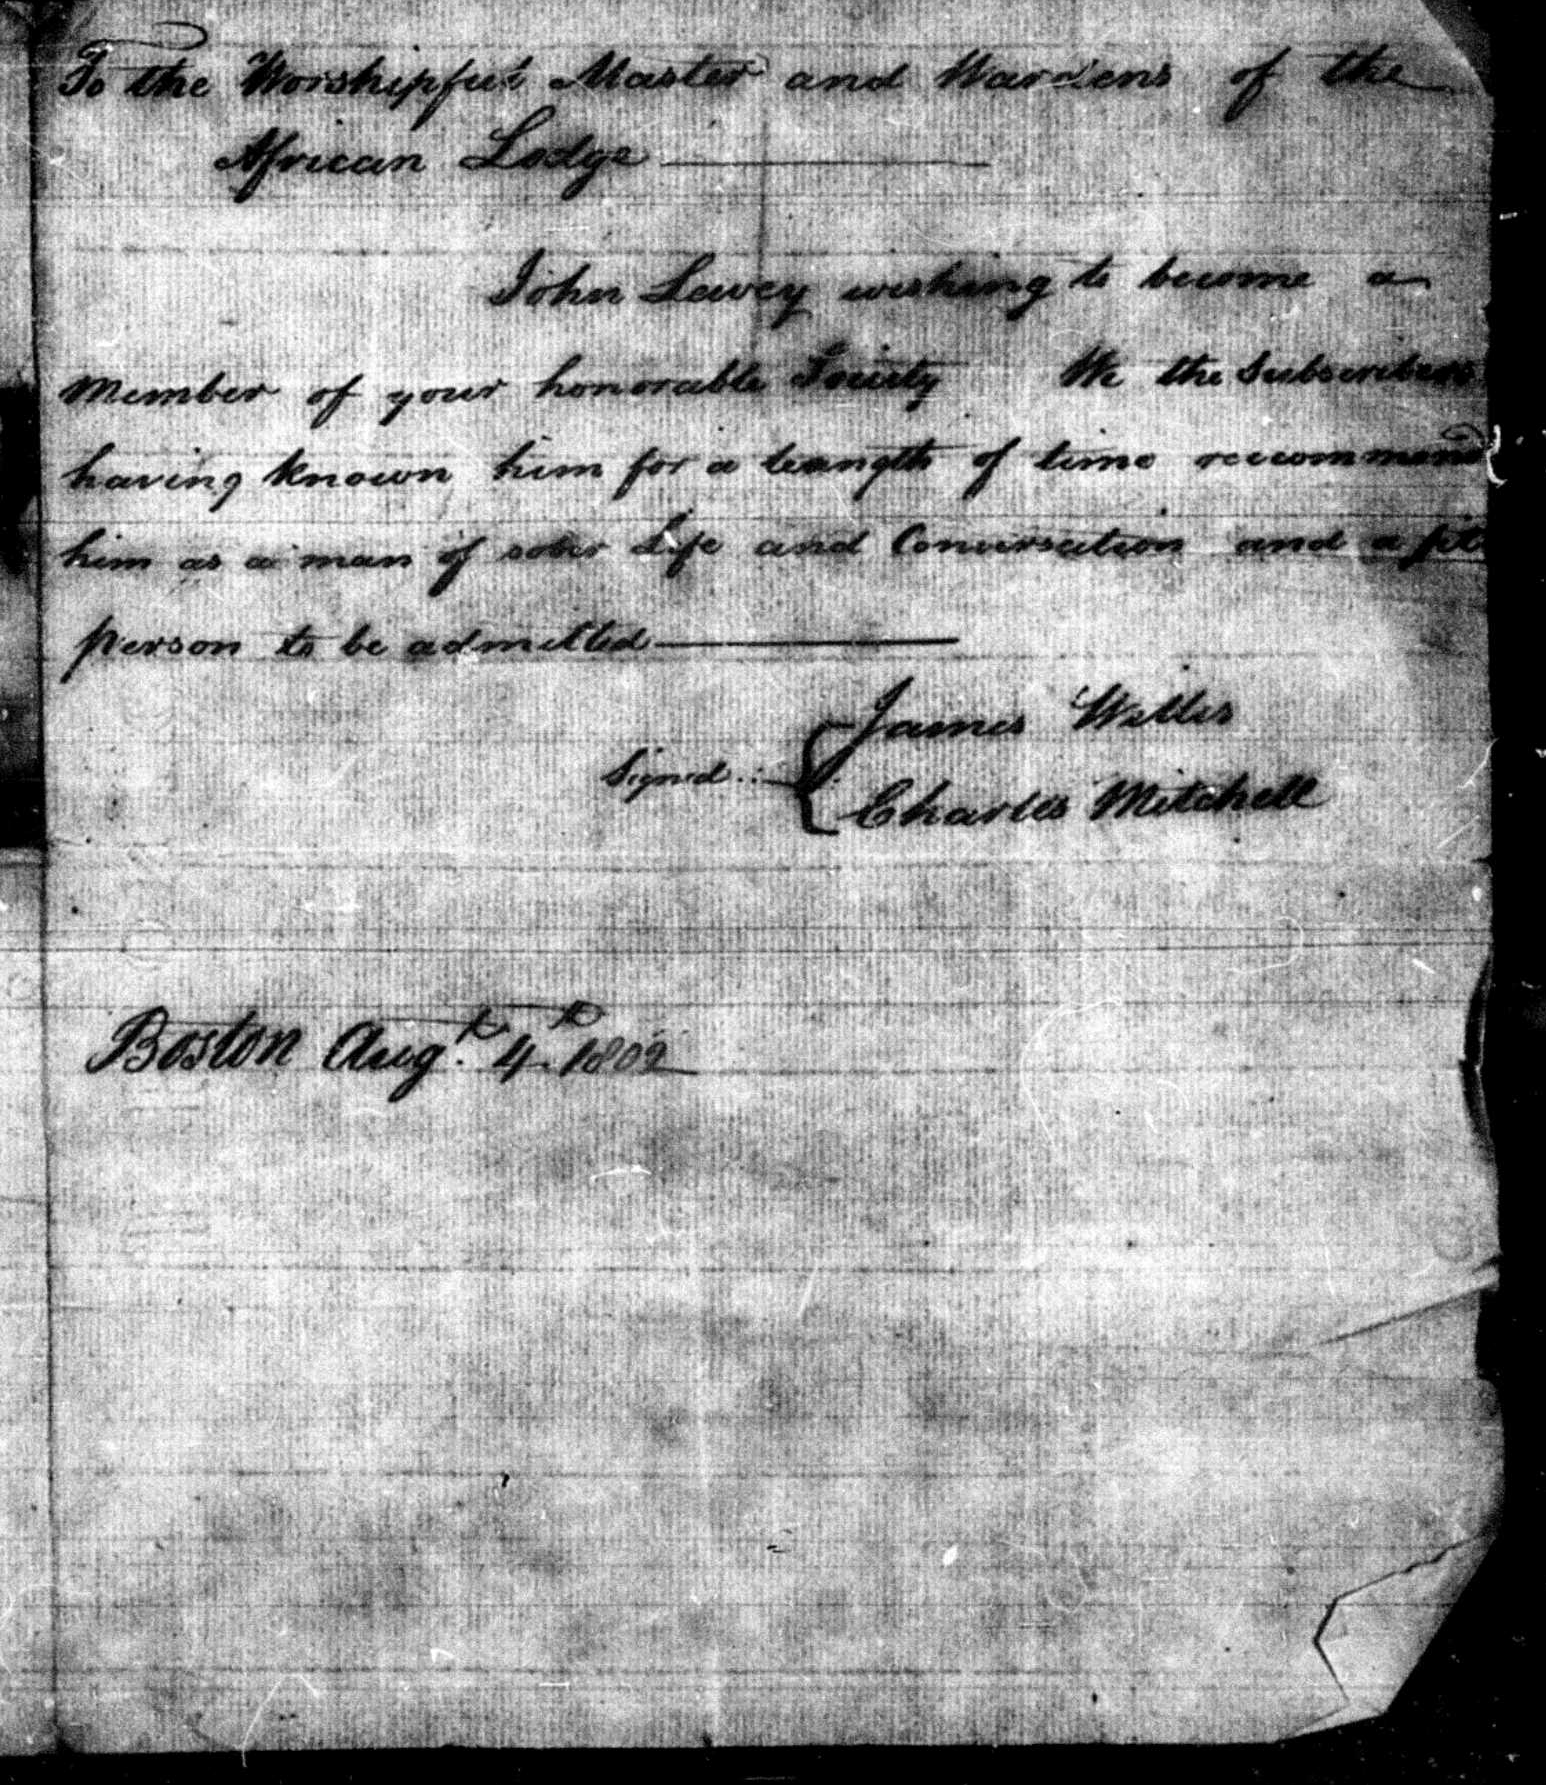 To the Worshipful Master and Wardens of the
African Lodge
John Lewey wishing to become a
Member of your honorable Society We the Subscribers
having known him for a leangth of time reccommend
him as a man of sober Life and Conversation and a fit
person to be admitted
James Willis
Signed
Charles Mitchell
Boston Augt. 4th 1802